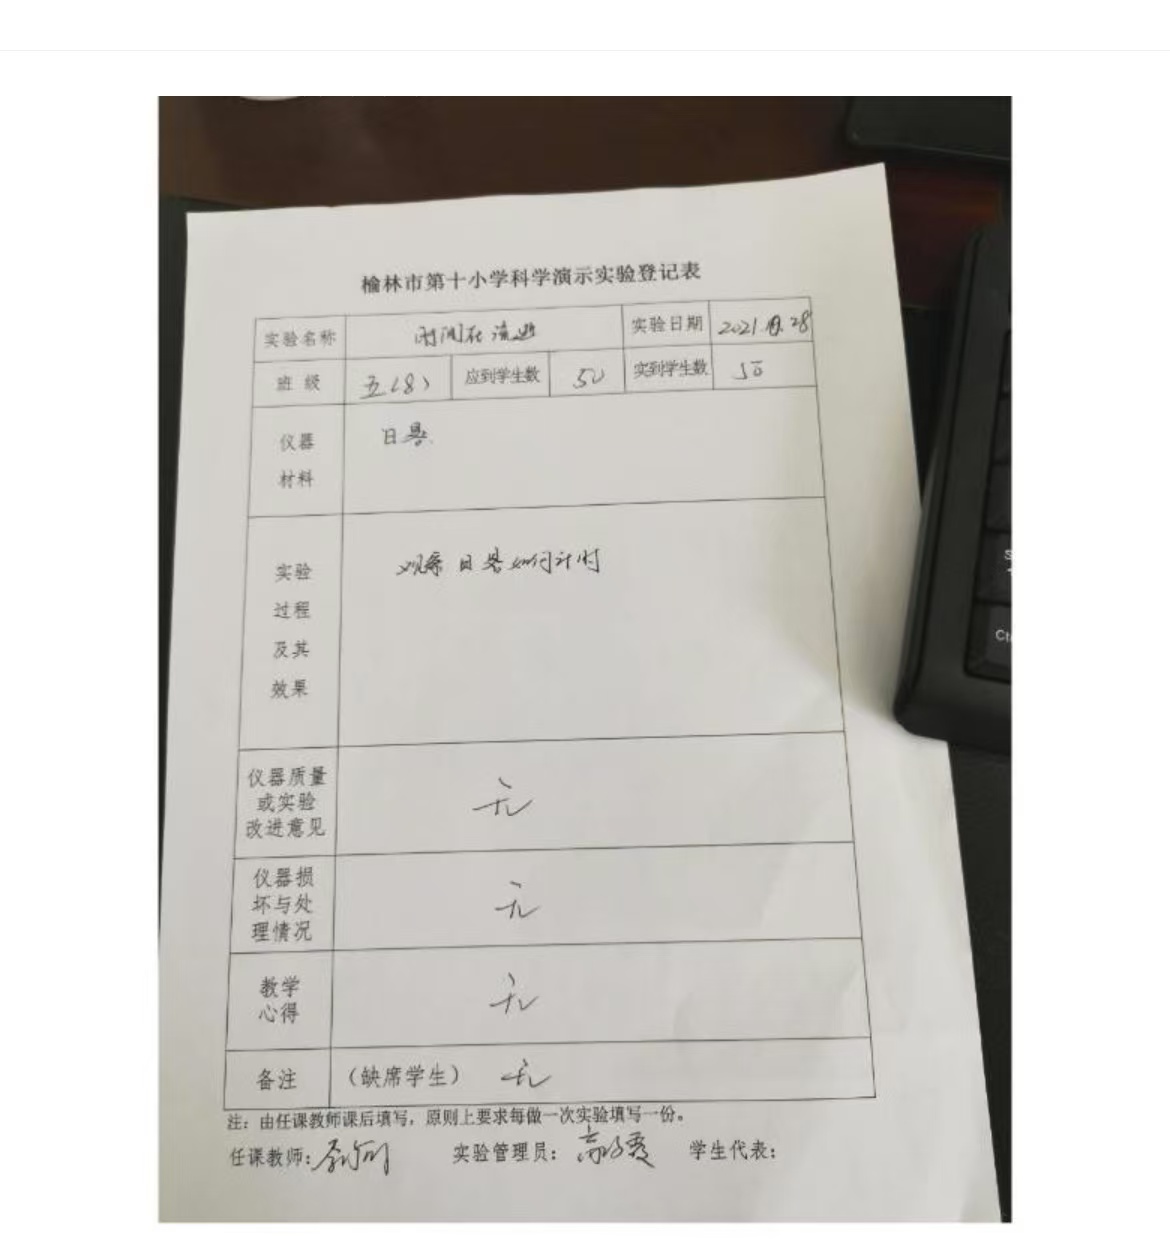 榆林市第十小学科学演示实验登记表
实验名称 时间在流逝 实验日期 2021.10.28
班级 五(8) 应到学生数 50 实到学生数 50
仪器
材料
日晷
实验
过程
及其
效果
观察日晷如何计时
仪器质量
或实验
改进意见
无
仪器损
坏与处
理情况
无
教学
心得
无
备注 (缺席学生) 无
注：由任课教师课后填写，原则上要求每做一次实验填写一份。
任课教师: 实验管理员: 学生代表:
S
Ct